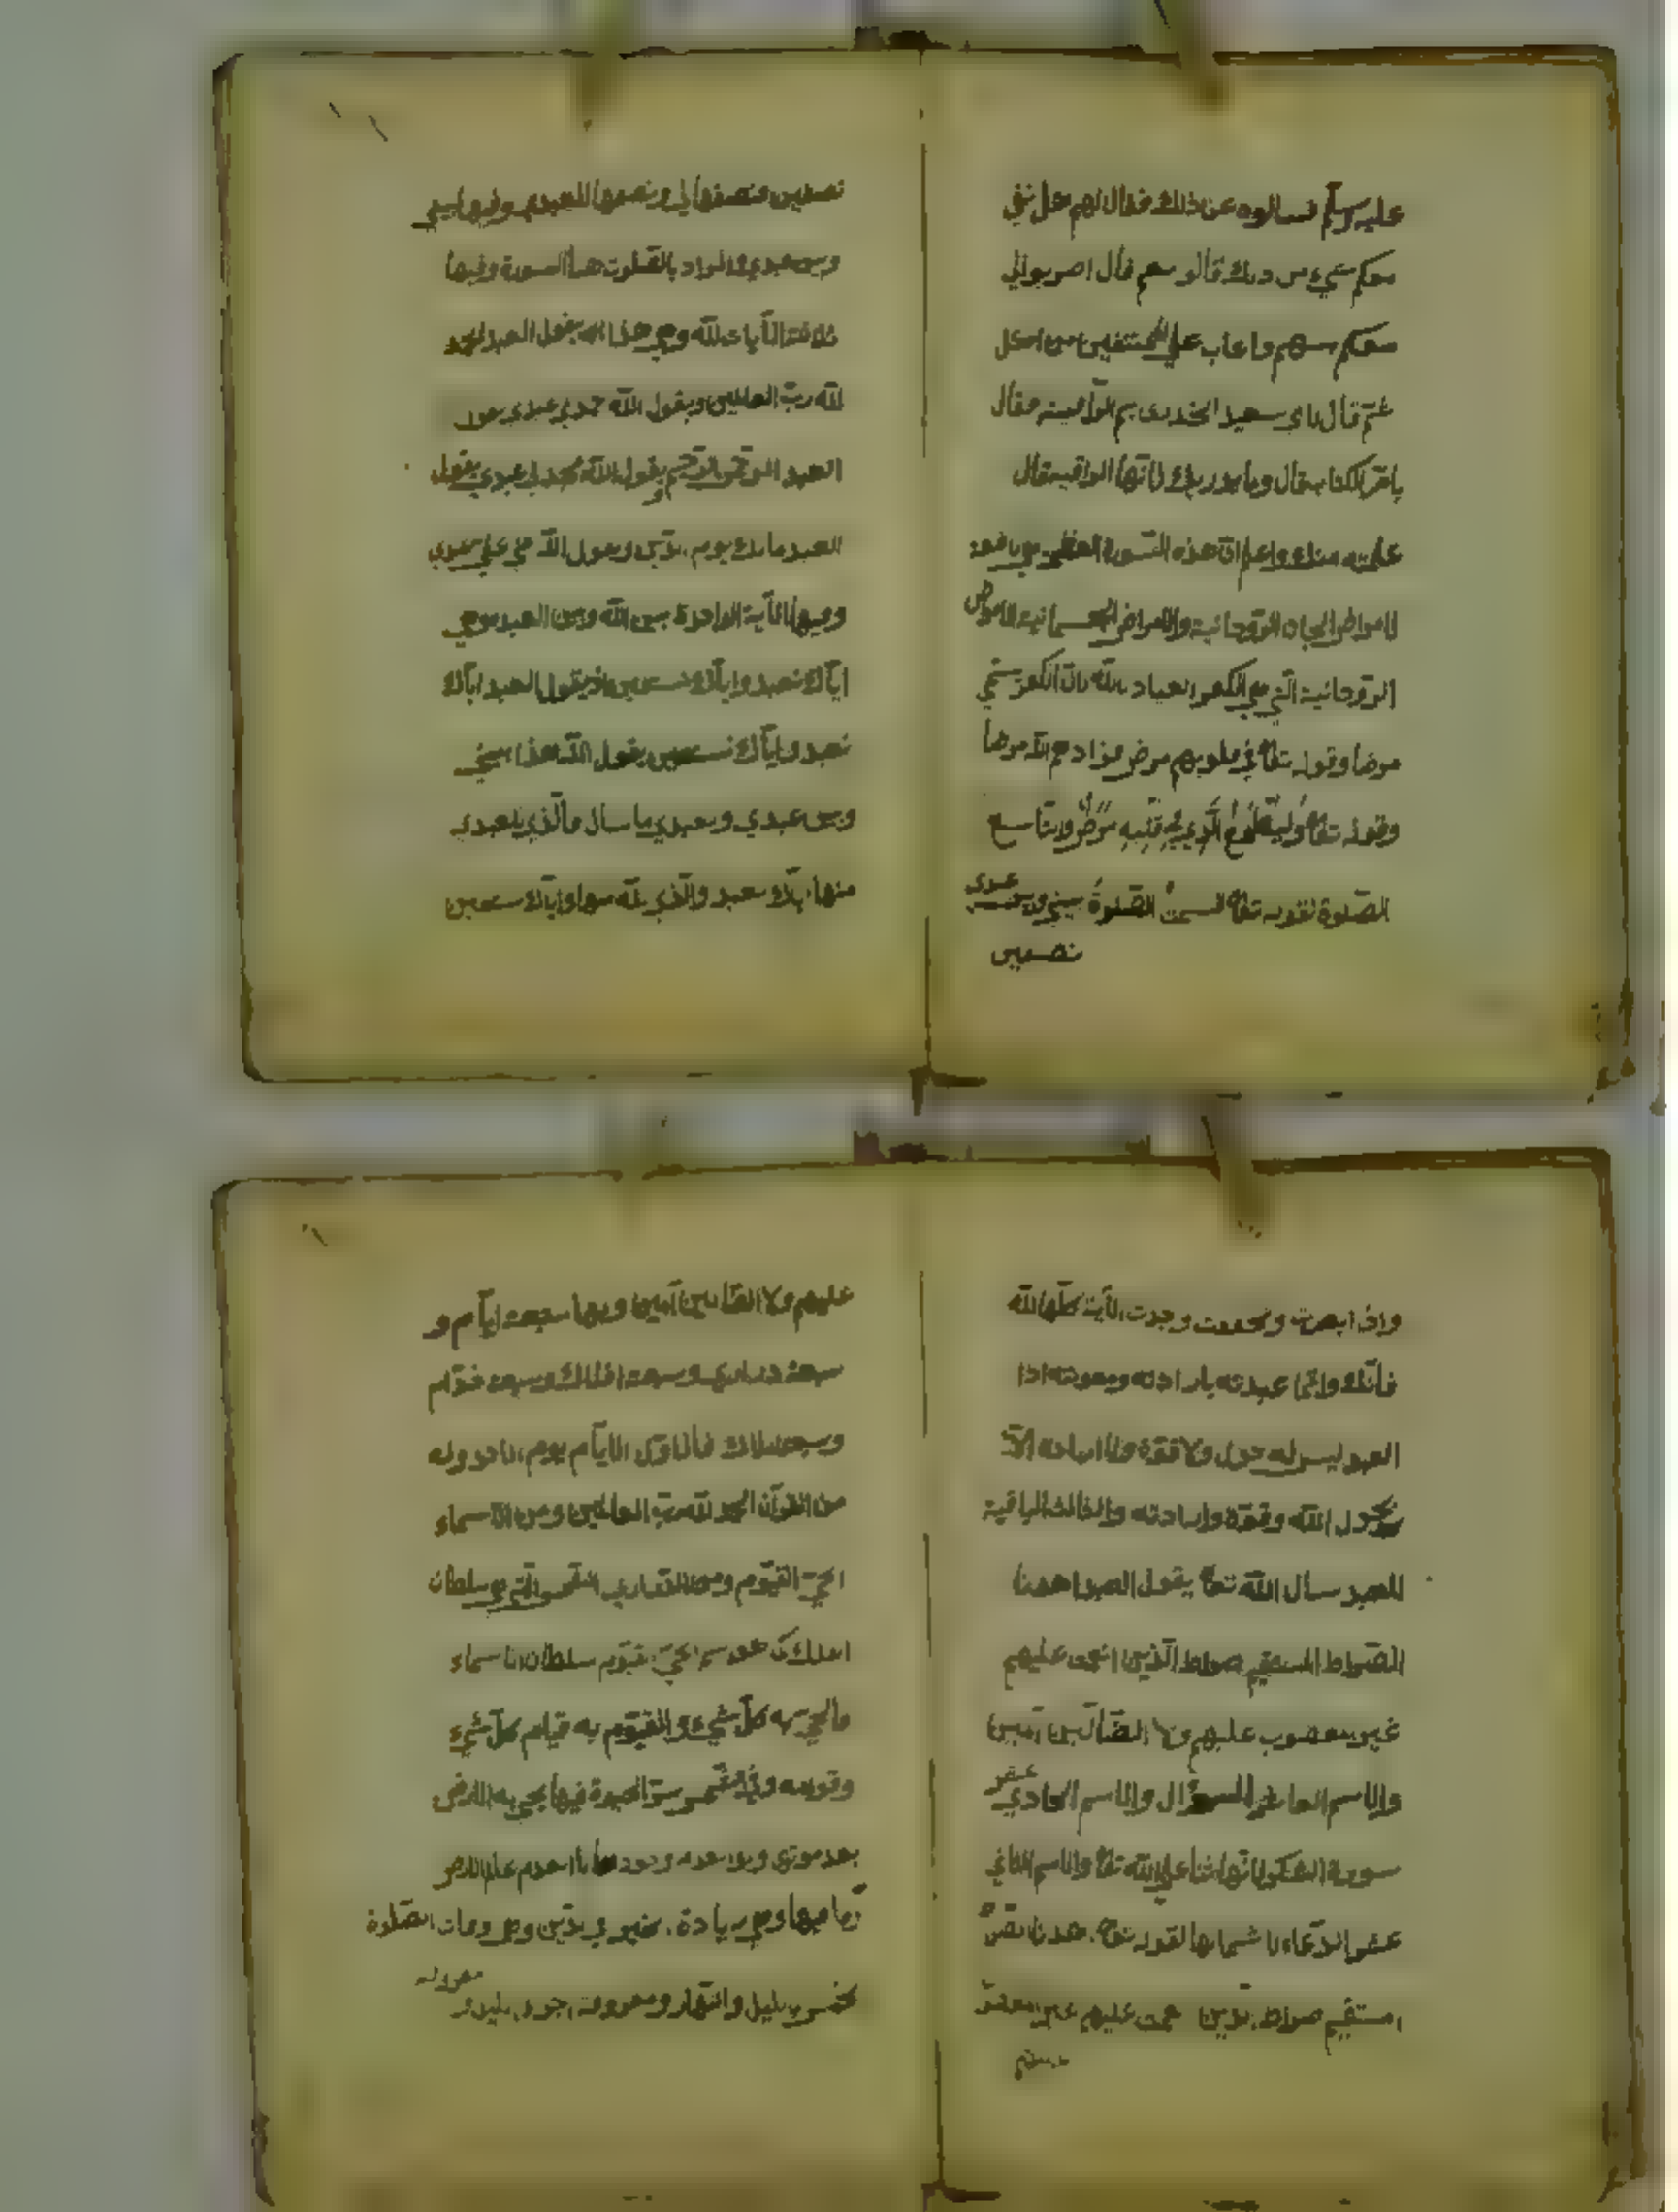 عليه وسلم فسالوه عن ذلك فقال لهم هل بقي
معكم شيء من ذلك قالو نعم قال اضربولي
معكم بسهم
ثم قال لابي سعيد الخدري بم الراقية فقال
بام الكتاب فقال وما يدريك لانها الراقية قال
علمته منك واعلم ان هذه السورة العظمى هي نافعة
الروحانية والامراض الجسمانية الامراض
الروحانية التي هي الكفر بالله لان الكفر سمي
مرضا وقوله تعالى في قلوبهم مرض فزادهم الله مرضا
وقوله تعالى الذي في قلبه مرض والتاسع
الصلوة لقوله تعالى قسمت الصلوة بيني وبين عبدي
نصفين
نصفين فنصفها لي ونصفها للعبدي وفيها بيني
وبين عبدي والمراد بالصلوت هذا السورة وفيها
ثلاثة الآيات لله وهي هذا يقول العبد الحمد
لله رب العالمين ويقول الله حمدي عبدي يقول
العبد الرحمن الرحيم يقول الله مجدني عبدي يقول
العبد مالك يوم الدين ويقول الله علي عبدي
وفيها الآية الواحدة بين الله وبين العبد وهي
اياك نعبد واياك نستعين يقول العبد اياك
نعبد واياك نستعين يقول الله هذا بيني
وبين عبدي ولعبدي ما سال فالذي للعبدي
منها اياك نعبد والذي لله منها واياك نستعين
واذا ابصرت وتحققت وجدت الآية كلها لله
فانك وانما عبدته بارادته ومعونته اذا
العبد ليس له حول ولا قوة ولا ارادة الا
بحول الله وقوة وارادته والثالث الباقية
للعبد سأل الله تعالى يقول العبد اهدنا
الصراط المستقيم صراط الذين انعمت عليهم
غير المغضوب عليهم ولا الضالين آمين
والاسم العاشر السؤال والاسم الحادي عشر
سورة الشكر لانها ثنا على الله تعالى والاسم الثاني
عشر الدعاء لاشمالها لقوله تعالى اهدنا الصراط
المستقيم صراط الذين انعمت عليهم غير المغضوب
عليهم
عليهم ولا الضالين آمين ولها سبعة ايام و
سبعة دراري وسبعة افلاك وسبعة خدام
وسبعة املاك فالاول الايام يوم الاحد وله
من القرآن الحمد لله رب العالمين ومن الاسماء
الحي القيوم ومن الدراري الشمس التي هي سلطان
الفلك كما هو اسم الحي القيوم سلطان الاسماء
فالحي به كل شيء والقيوم به قيام كل شيء
وقوته وفي الشمس سر الحيوة فيها يحي به الارض
بعد موتها
وهي زيادة الخير في الدين ومعرفات الصلوة
الخمس بالليل والنهار ومعرفة